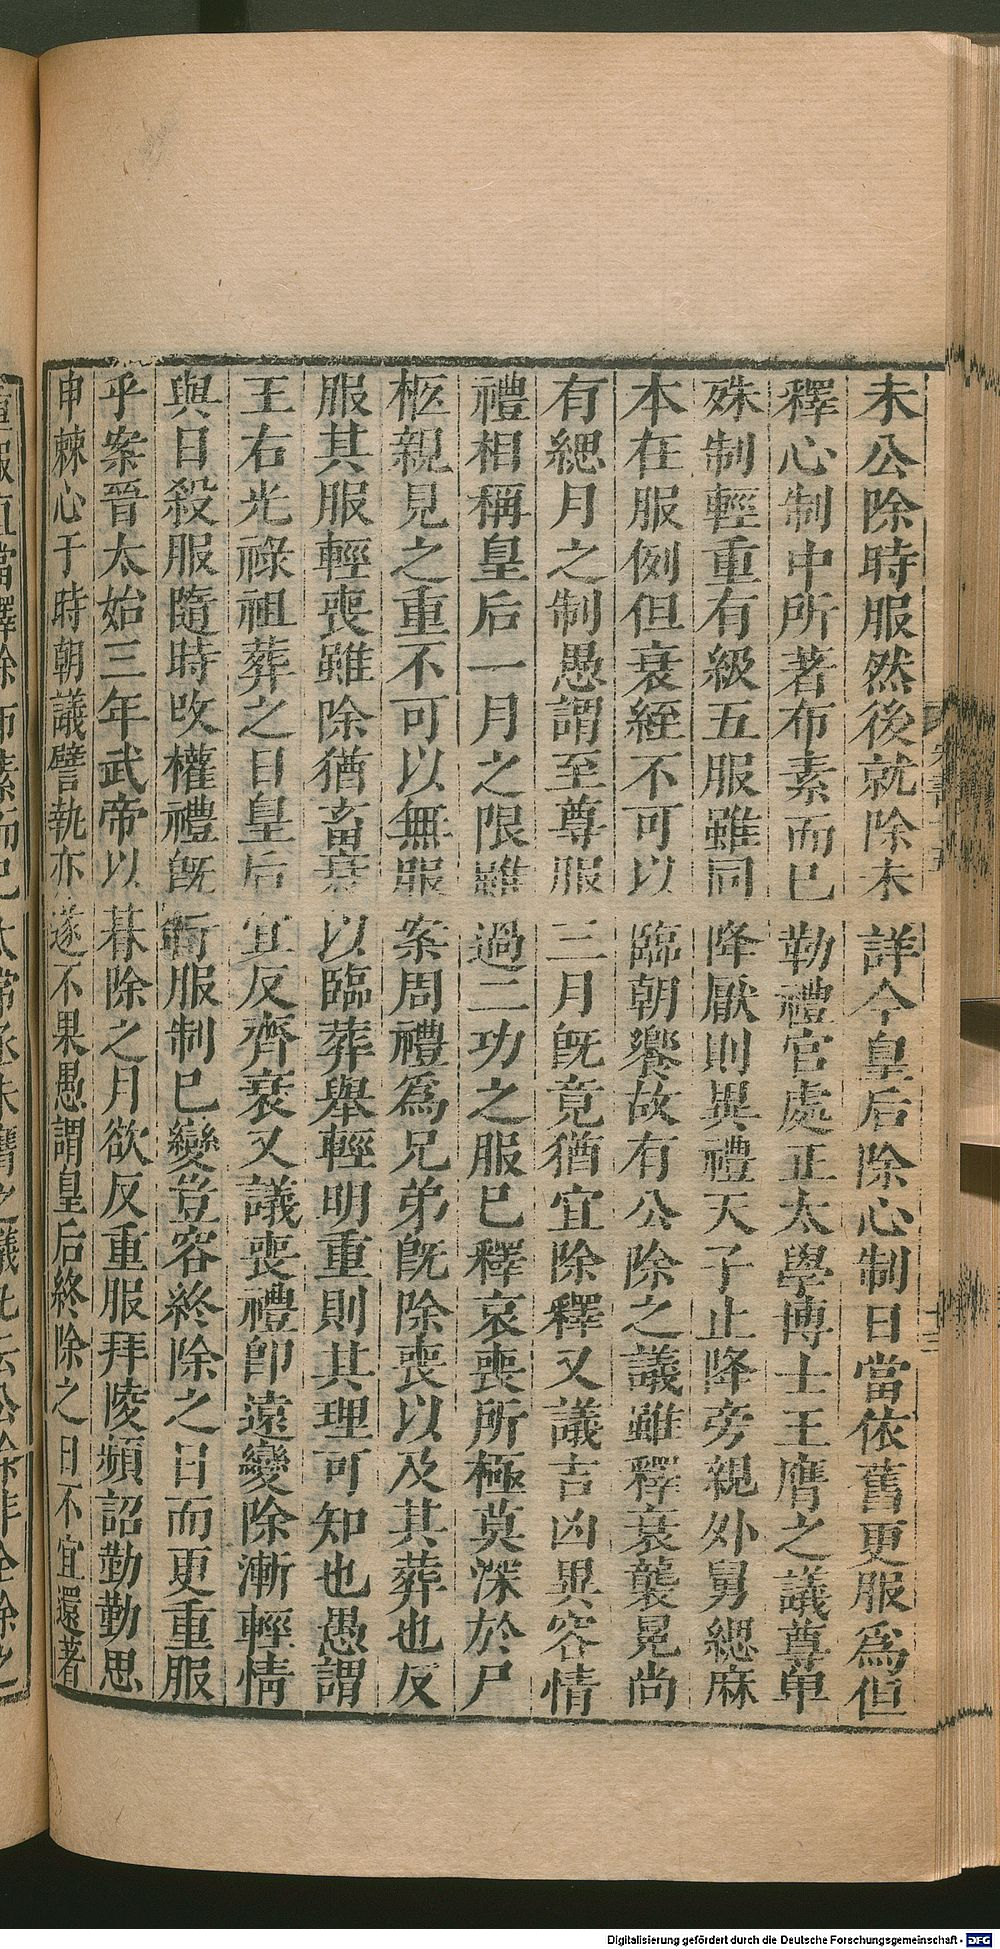 未公除時服然後就除未詳今皇后除心制日當依舊更服為但
釋心制中所著布素而已勒禮官處正太學博士王膺之議尊卑
殊制輕重有級五服雖同降厭則異禮天子止降旁親外舅緦麻
本在服例但衰絰不可以臨朝饗故有公除之議雖釋衰襲冕尚
有緦月之制愚謂至尊服三月既竟猶宜除釋又議吉凶異容情
禮相稱皇后一月之限雖過二功之服已釋哀喪所極莫深於尸
柩親見之重不可以無服案周禮為兄弟既除喪以及其葬也反
服其服輕喪雖除猶畜衰以臨葬舉輕明重則其理可知也愚謂
王右光祿祖葬之日皇后宜反齊衰又議喪禮即遠變除漸輕情
與日殺服隨時改權禮既行服制已變豈容終除之日而更重服
乎案晉太始三年武帝以朞除之月欲反重服拜陵頻詔勤勤思
申棘心于時朝議譬執亦遂不果愚謂皇后終除之日不宜還著
重服直當釋除布素而已太常丞朱膺之議凡云公除非全除之
宋書十五
十三
Digitalisierung gefördert durch die Deutsche Forschungsgemeinschaft - DFG